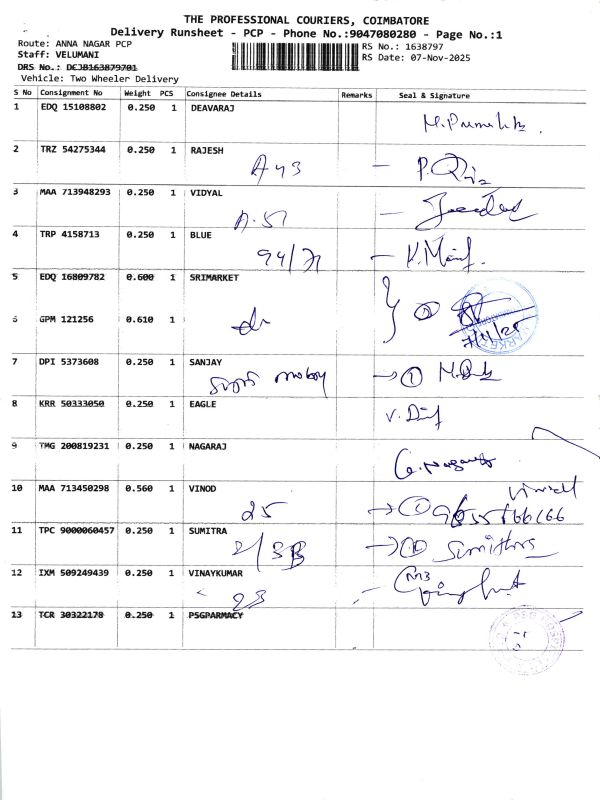 THE PROFESSIONAL COURIERS, COIMBATORE
Delivery Runsheet - PCP - Phone No.:9047080280 - Page No.:1
Route: ANNA NAGAR PCP
RS No.: 1638797
Staff: VELUMANI
RS Date: 07-Nov-2025
DRS No.: DCJB163879701
Vehicle: Two Wheeler Delivery
S No Consignment No Weight PCS Consignee Details Remarks Seal & Signature
1 EDQ 15108802 0.250 1 DEAVARAJ
2 TRZ 54275344 0.250 1 RAJESH
A 43
3 MAA 713948293 0.250 1 VIDYAL
A. 51
4 TRP 4158713 0.250 1 BLUE
94/71
5 EDQ 16809782 0.600 1 SRIMARKET
6 GPM 121256 0.610 1
7/11/25
7 DPI 5373608 0.250 1 SANJAY
8 KRR 50333050 0.250 1 EAGLE
9 TMG 200819231 0.250 1 NAGARAJ
G. Nagaraj
10 MAA 713450298 0.560 1 VINOD
25
11 TPC 9000060457 0.250 1 SUMITRA
2/3B
12 IXM 509249439 0.250 1 VINAYKUMAR
23
13 TCR 30322178 0.250 1 PSGPARMACY